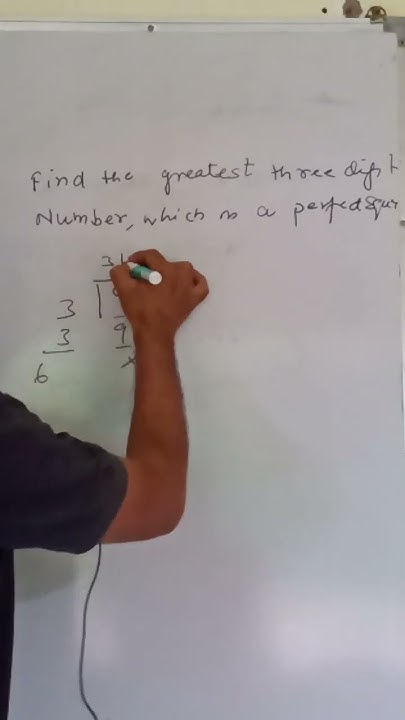 Find the greatest three digit
Number, which is a perfect Squr
31
3
3 9
6 x